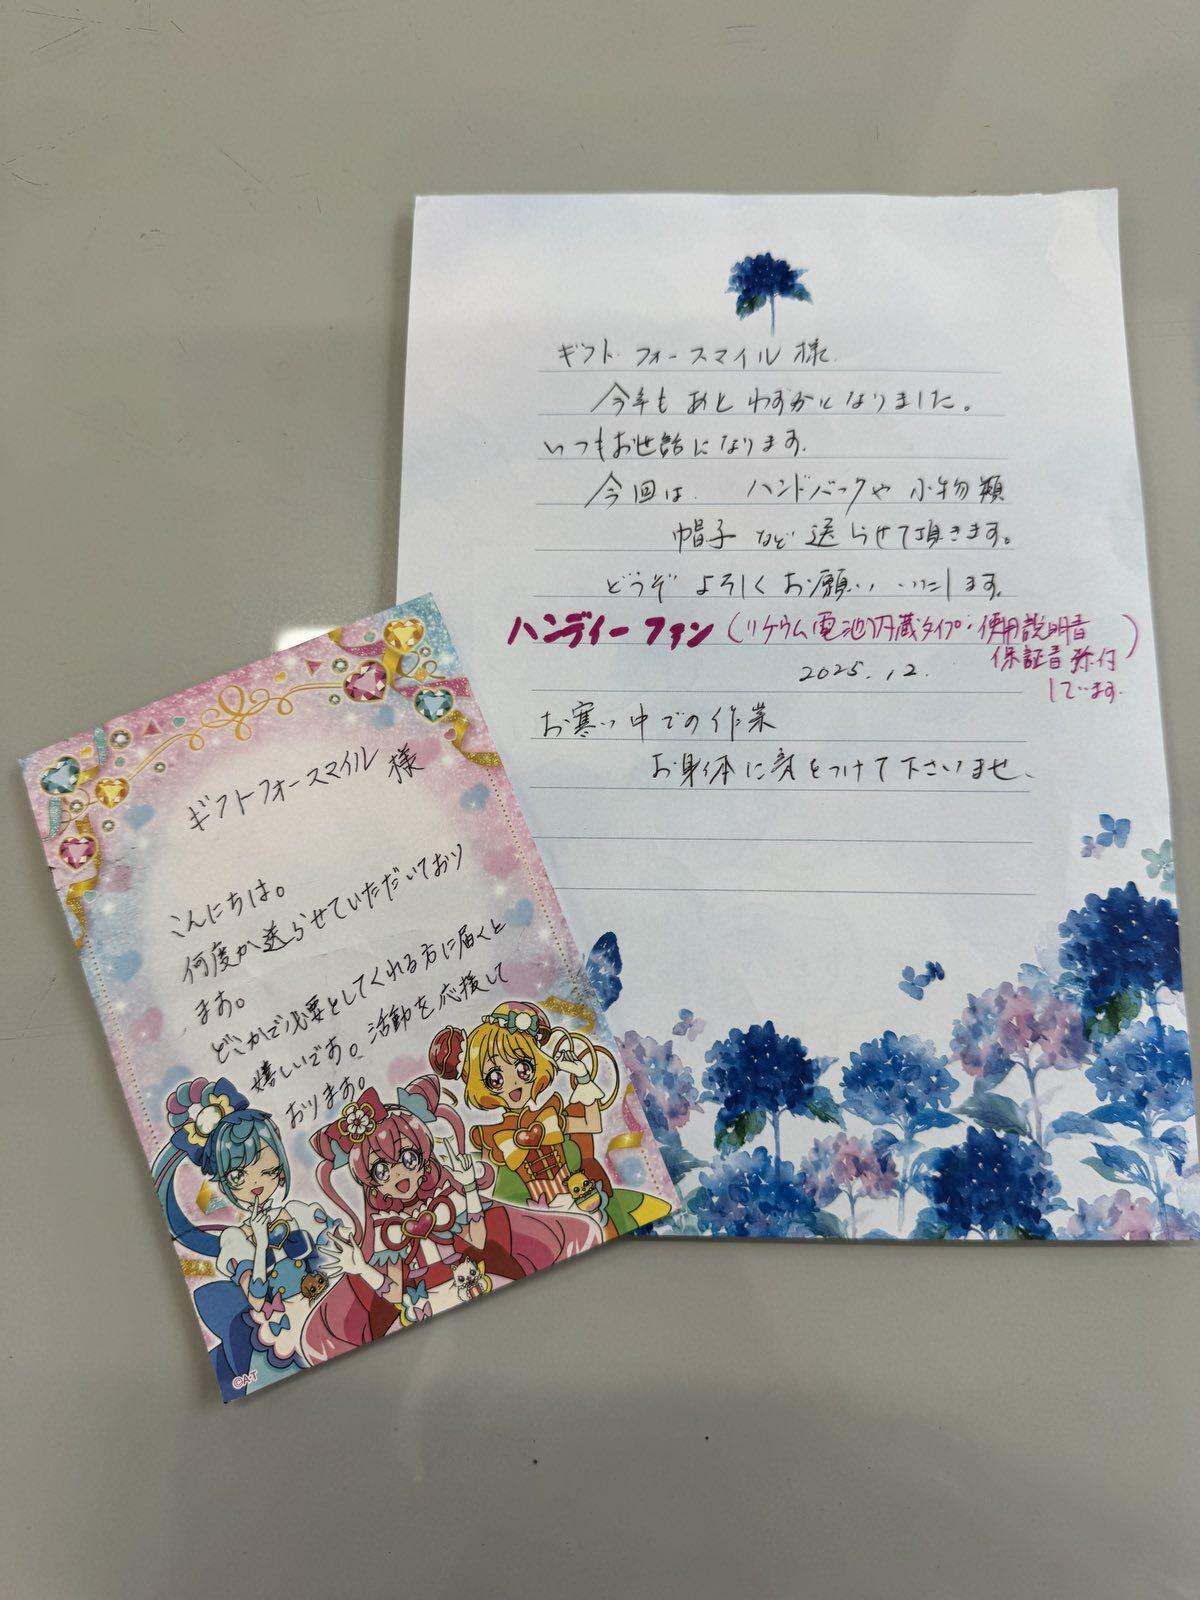 ギフトフォースマイル様
今年もあとわずかになりました。
いつもお世話になります。
今回は、ハンドバックや小物類
帽子など送らせて頂きます。
どうぞよろしくお願いいたします。
ハンディーファン(リケウム電池内蔵タイプ・使用説明書
保証書添付
しています。)
2025.12.
お寒い中での作業
お身体に気をつけて下さいませ、
ギフトフォースマイル様
こんにちは。
何度か送らせていただいており
ます。
どこかで必要としてくれる方に届くと
嬉しいです。活動を応援して
おります。
©A・T